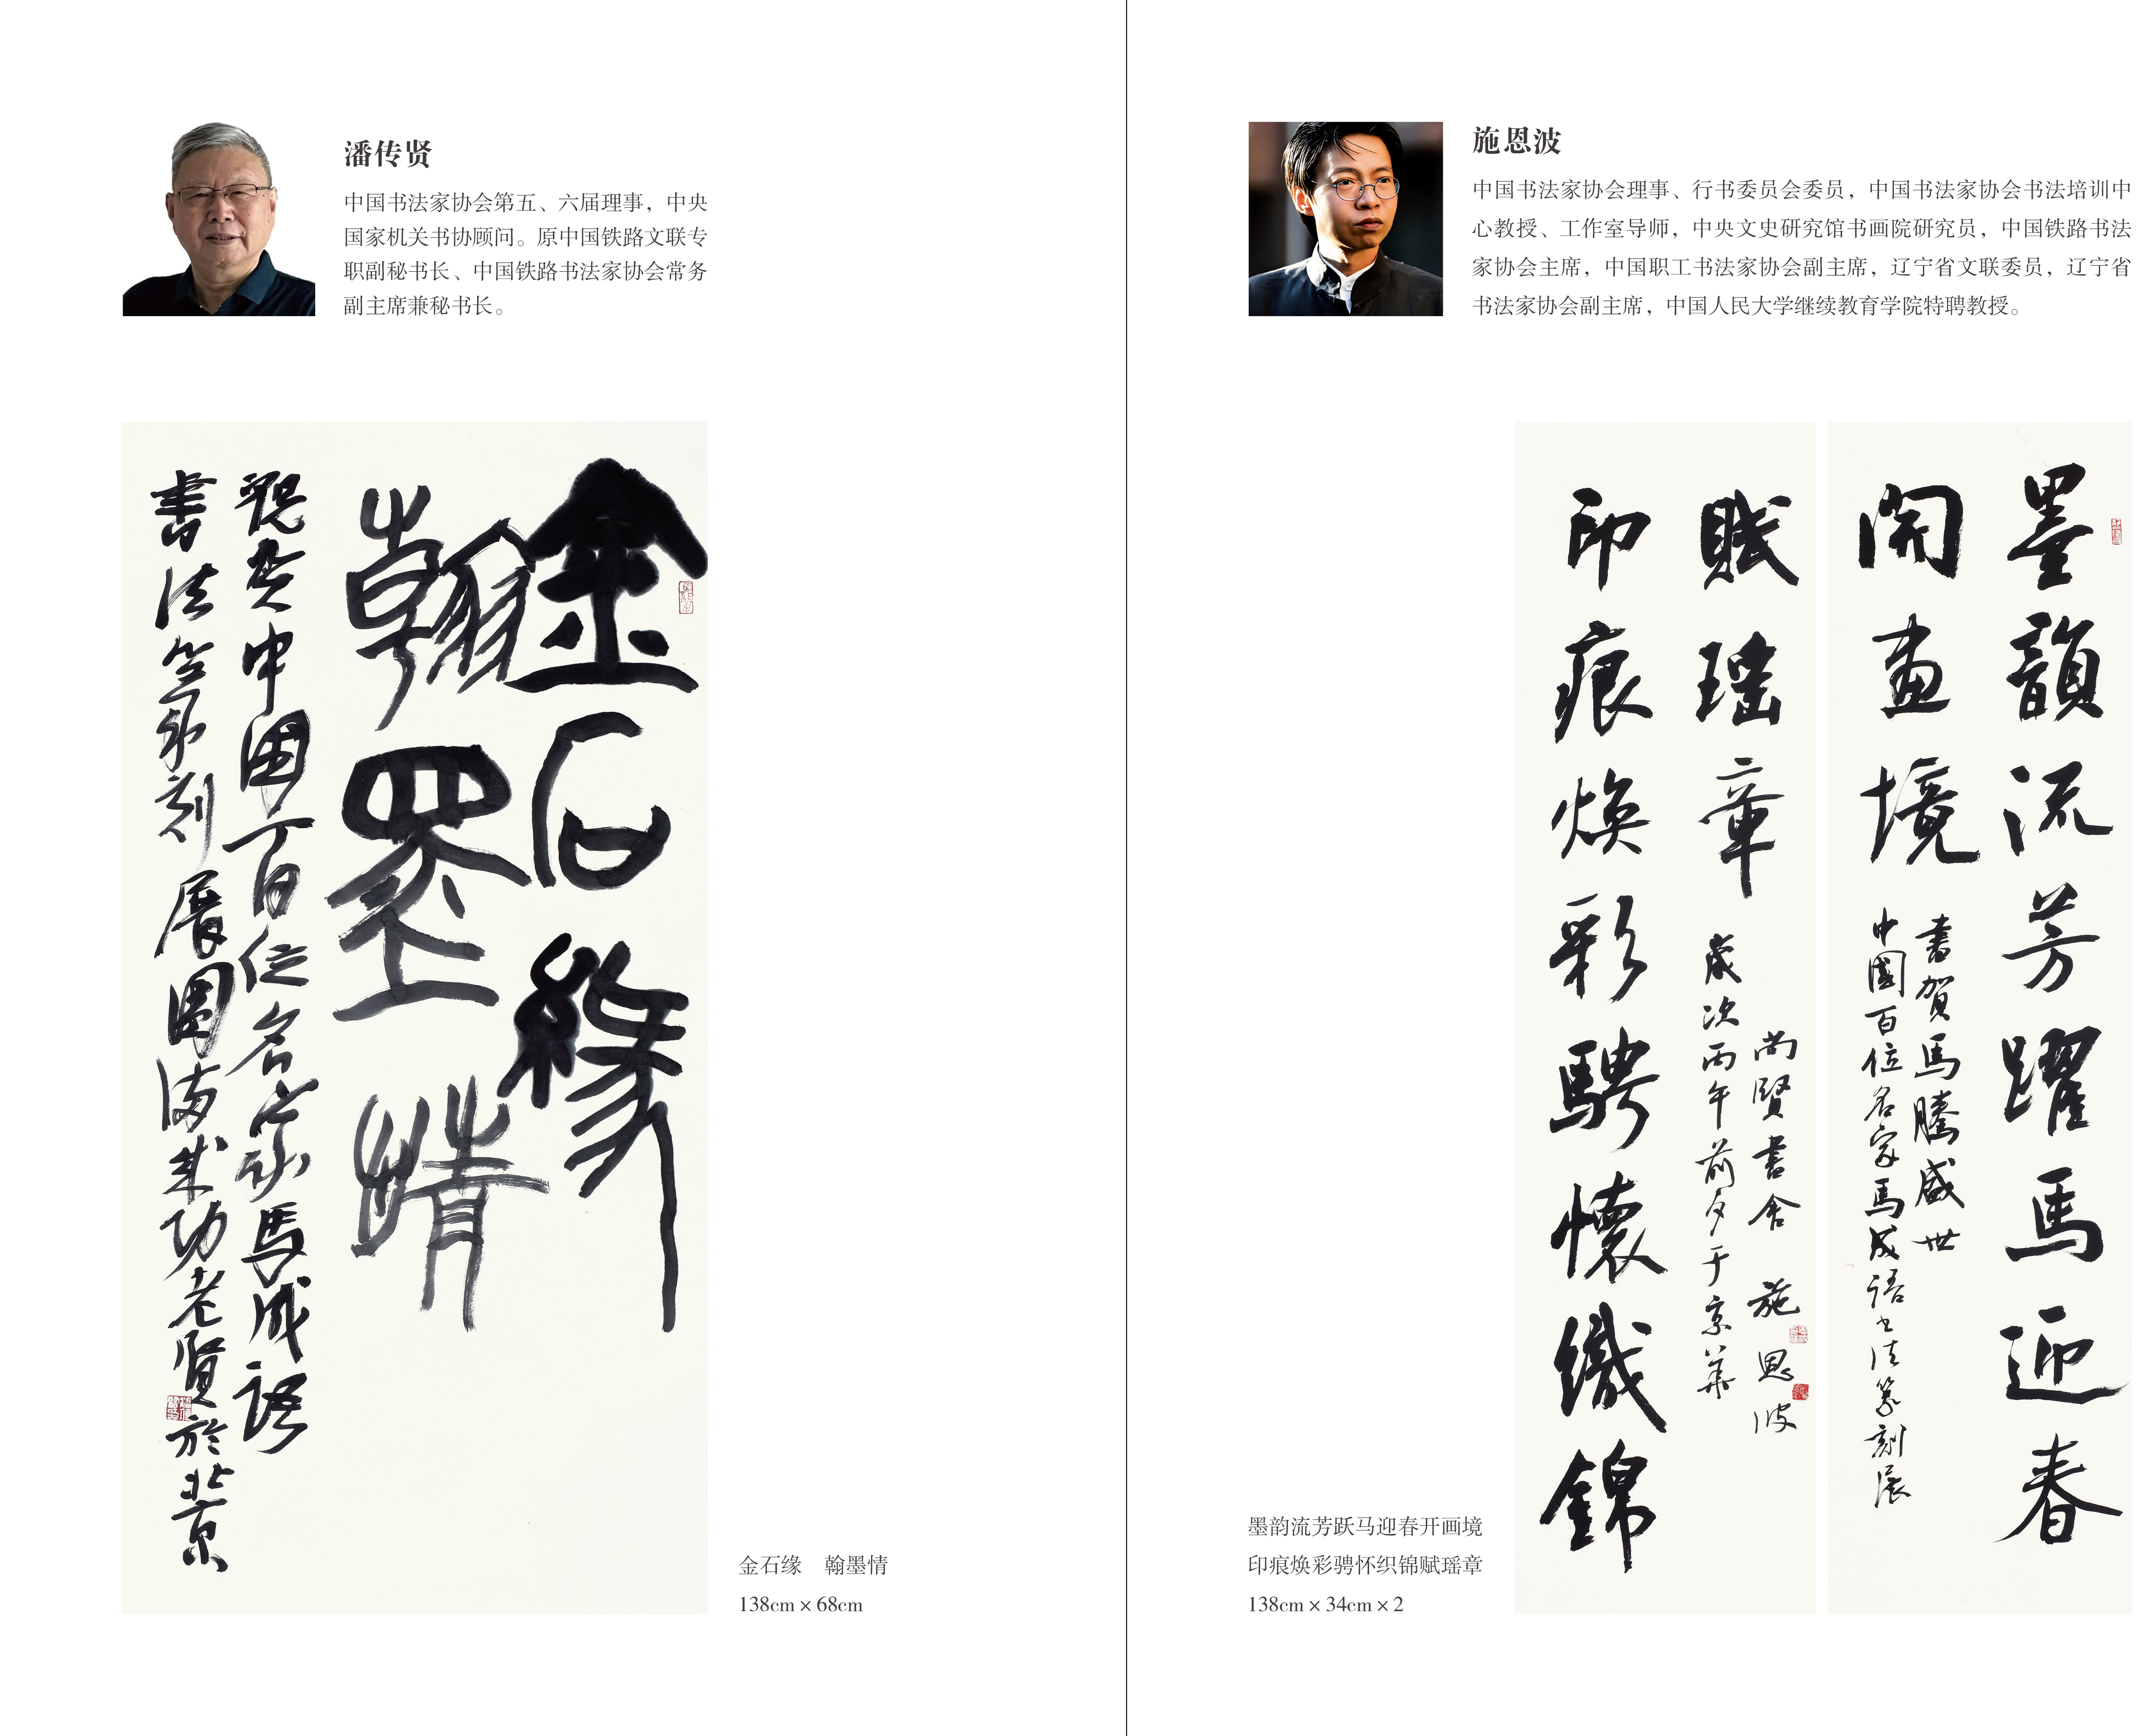 潘传贤
中国书法家协会第五、六届理事，中央
国家机关书协顾问。原中国铁路文联专
职副秘书长、中国铁路书法家协会常务
副主席兼秘书长。
金石緣
翰墨情
祝贺中國百位名家馬成语
書法篆刻展圆满成功老賢於北京
金石缘　翰墨情
138cm × 68cm
施恩波
中国书法家协会理事、行书委员会委员，中国书法家协会书法培训中
心教授、工作室导师，中央文史研究馆书画院研究员，中国铁路书法
家协会主席，中国职工书法家协会副主席，辽宁省文联委员，辽宁省
书法家协会副主席，中国人民大学继续教育学院特聘教授。
墨韻流芳躍馬迎春
開畫境
書賀馬騰盛世
中國百位名家馬成语书法篆刻展
印痕焕彩騁懷織錦
賦瑤章
歲次丙午前夕于京華
尚賢書舍　施恩波
墨韵流芳跃马迎春开画境
印痕焕彩骋怀织锦赋瑶章
138cm × 34cm × 2